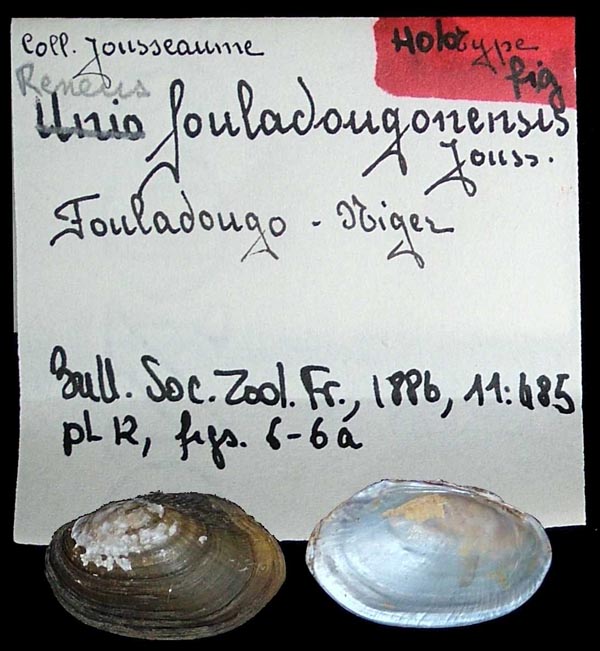 Coll. Jousseaume
Holotype
fig
Reneus
Unio fouladougonensis
Jouss.
Fouladougo - Niger
Bull. Soc. Zool. Fr., 1886, 11:485
pl 12, figs. 6-6a